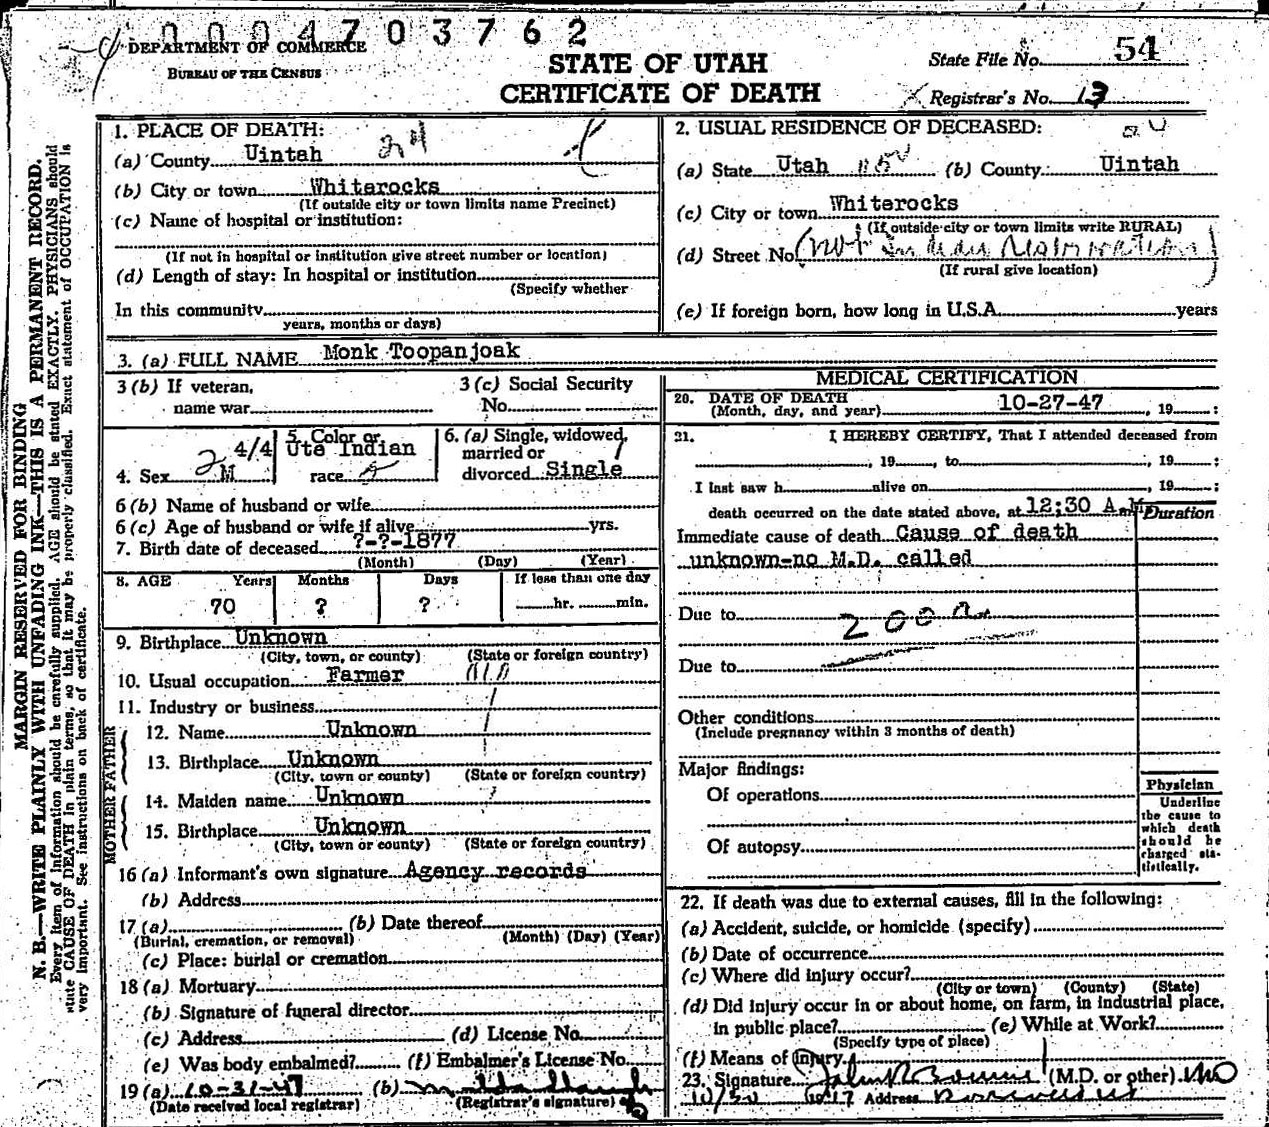 0004703762
DEPARTMENT OF COMMERCE
BUREAU OF THE CENSUS
STATE OF UTAH
CERTIFICATE OF DEATH
State File No. 54
Registrar's No. 13
MARGIN RESERVED FOR BINDING
N. B.—WRITE PLAINLY WITH UNFADING INK—THIS IS A PERMANENT RECORD.
Every item of information should be carefully supplied. AGE should be stated EXACTLY. PHYSICIANS should
state CAUSE OF DEATH in plain terms, so that it may be properly classified. Exact statement of OCCUPATION is
very important. See instructions on back of certificate.
1. PLACE OF DEATH:
24
(a) County Uintah
(b) City or town Whiterocks
(If outside city or town limits name Precinct)
(c) Name of hospital or institution:
(If not in hospital or institution give street number or location)
(d) Length of stay: In hospital or institution
(Specify whether
In this community
years, months or days)
2. USUAL RESIDENCE OF DECEASED:
(a) State Utah (b) County Uintah
(c) City or town Whiterocks
(If outside city or town limits write RURAL)
(d) Street No. (not Indian Reservation)
(If rural give location)
(e) If foreign born, how long in U.S.A. years
3. (a) FULL NAME Monk Toopanjoak
3 (b) If veteran,
name war
3 (c) Social Security
No.
4. Sex M 2 4/4
5. Color or
race Ute Indian
6. (a) Single, widowed,
married or
divorced Single
6 (b) Name of husband or wife
6 (c) Age of husband or wife if alive yrs.
7. Birth date of deceased ?-?-1877
(Month) (Day) (Year)
8. AGE Years Months Days If less than one day
70 ? ? hr. min.
9. Birthplace Unknown
(City, town, or county) (State or foreign country)
10. Usual occupation Farmer
11. Industry or business
FATHER
12. Name Unknown
13. Birthplace Unknown
(City, town or county) (State or foreign country)
MOTHER
14. Maiden name Unknown
15. Birthplace Unknown
(City, town or county) (State or foreign country)
16 (a) Informant's own signature Agency records
(b) Address
17 (a) (b) Date thereof
(Burial, cremation, or removal) (Month) (Day) (Year)
(c) Place: burial or cremation
18 (a) Mortuary
(b) Signature of funeral director
(c) Address (d) License No.
(e) Was body embalmed? (f) Embalmer's License No.
19 (a) 10-31-47 (b)
(Date received local registrar) (Registrar's signature)
MEDICAL CERTIFICATION
20. DATE OF DEATH
(Month, day, and year) 10-27-47, 19 :
21. I HEREBY CERTIFY, That I attended deceased from
, 19 , to , 19 ;
I last saw h alive on , 19 ;
death occurred on the date stated above, at 12:30 A.M.
Duration
Immediate cause of death Cause of death
unknown-no M.D. called
Due to 200a
Due to
Other conditions
(Include pregnancy within 3 months of death)
Major findings:
Of operations
Of autopsy
Physician
Underline
the cause to
which death
should be
charged sta-
tistically.
22. If death was due to external causes, fill in the following:
(a) Accident, suicide, or homicide (specify)
(b) Date of occurrence
(c) Where did injury occur?
(City or town) (County) (State)
(d) Did injury occur in or about home, on farm, in industrial place,
in public place? (e) While at Work?
(Specify type of place)
(f) Means of Injury
23. Signature (M.D. or other) MD
10/30 1947 Address